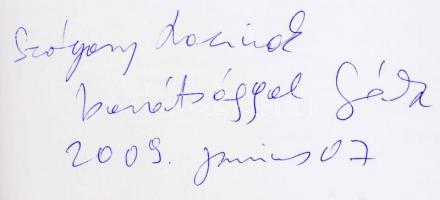 Szőgyeny Lacinak
barátsággal Géza
2009. junius 07